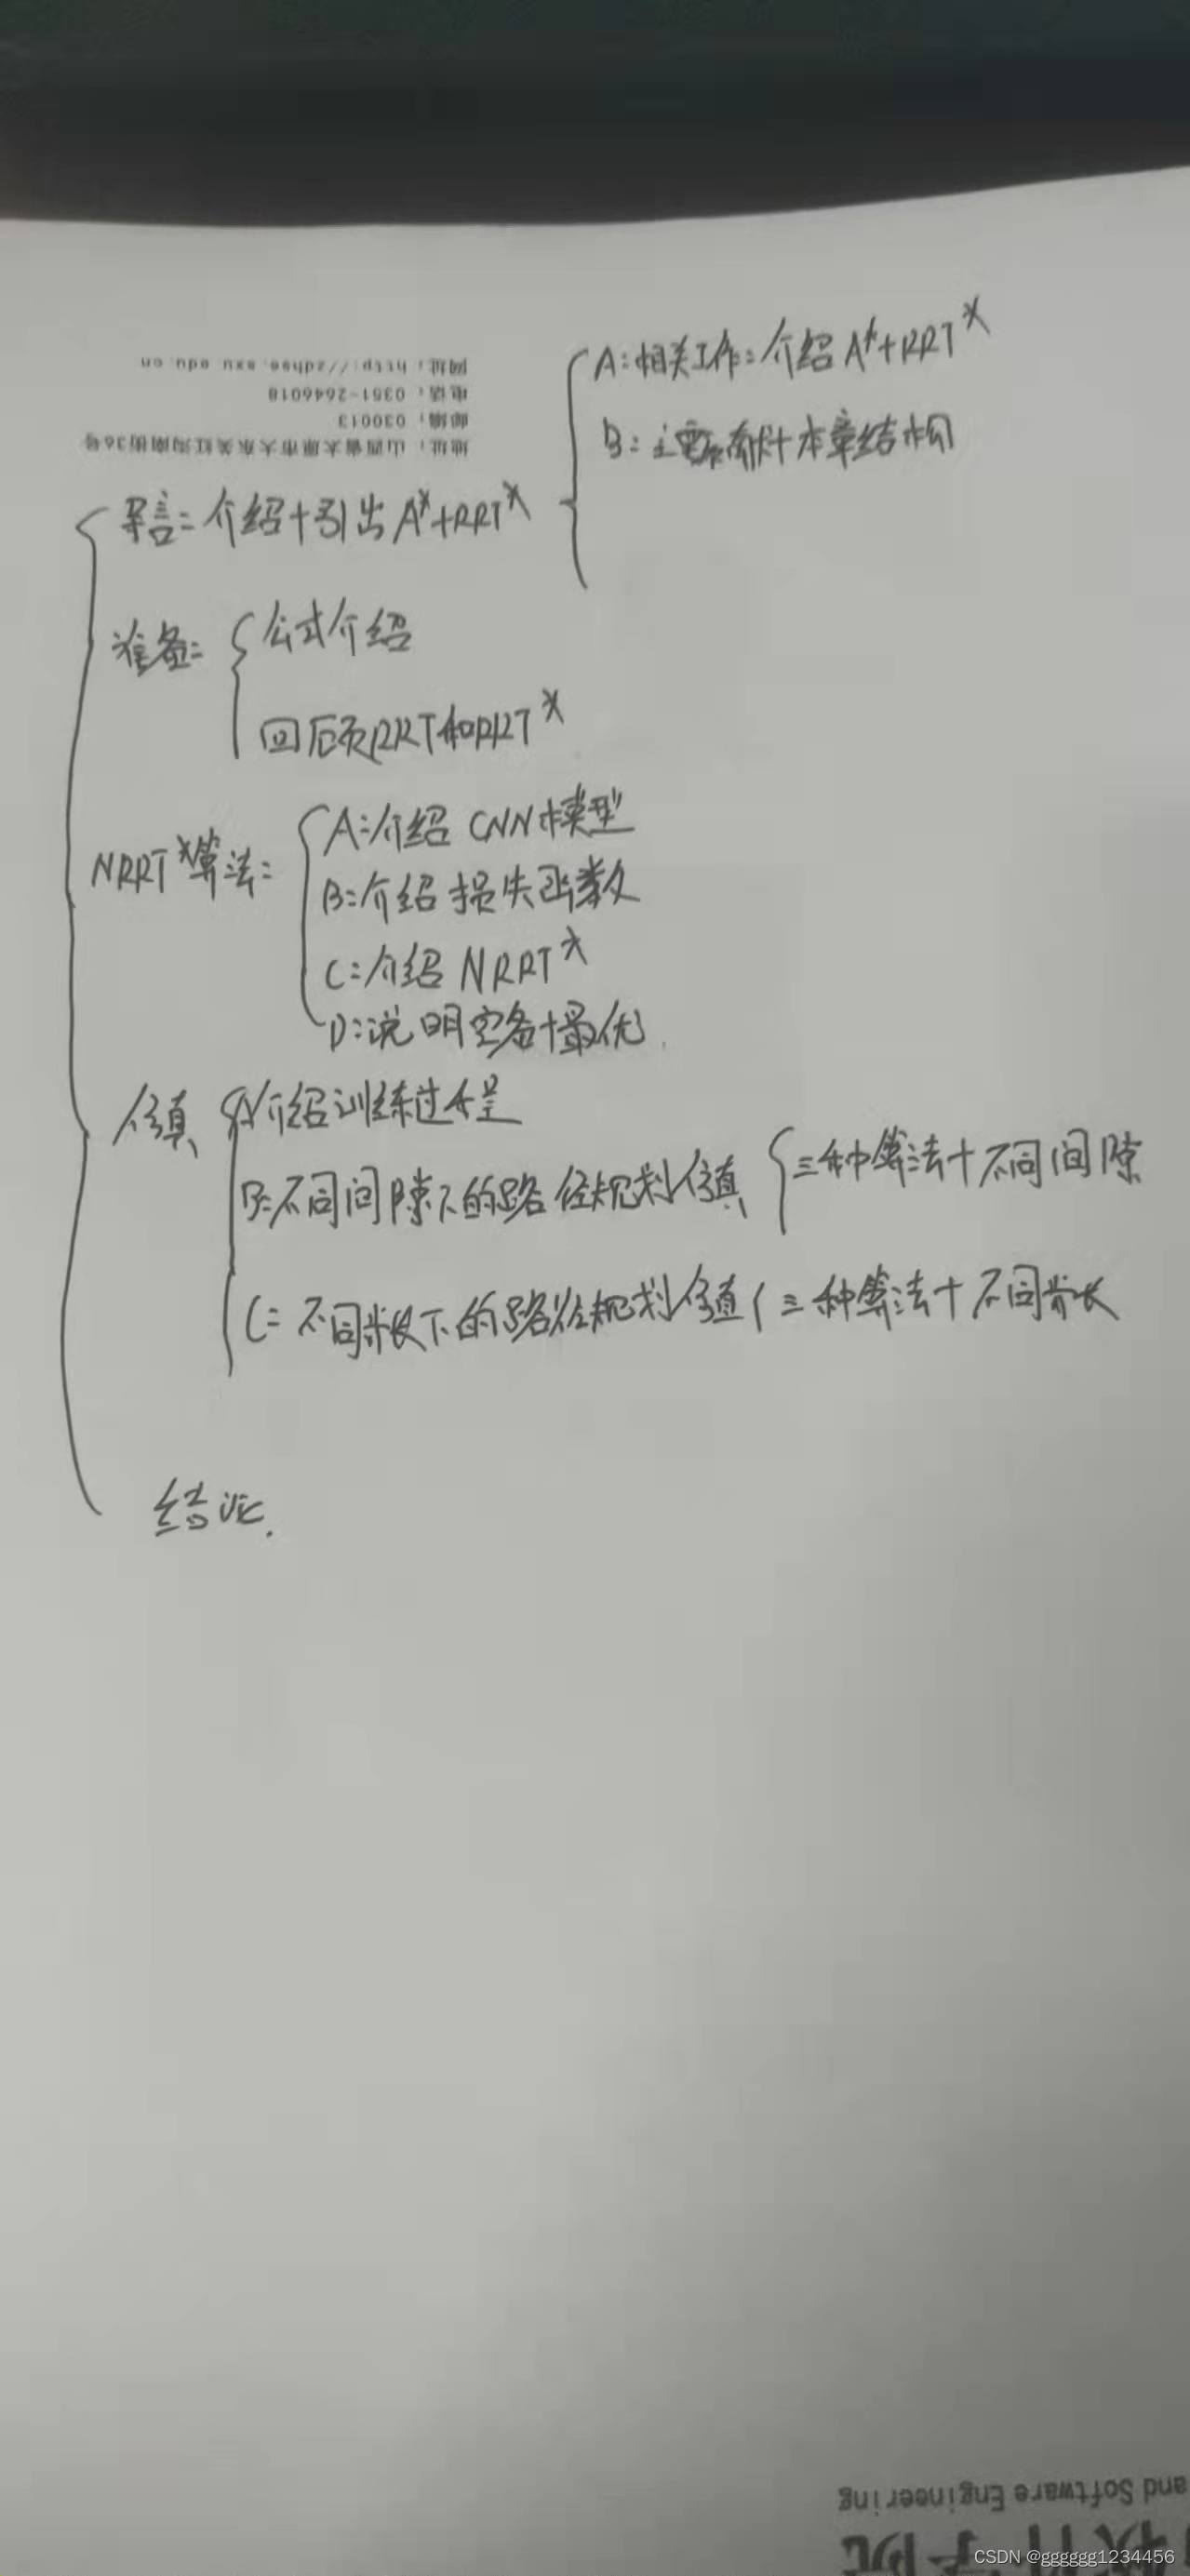 A:相关工作:介绍A*+RRT*
B:主要贡献+本章结构
网址:http://zdhse.sxu.edu.cn
电话:0351-2646018
邮编:030013
地址:山西省太原市大东关红沟南街36号
导言:介绍+引出A*+RRT*
准备:
公式介绍
回顾RRT和RRT*
NRRT*算法:
A:介绍CNN模型
B:介绍损失函数
C:介绍NRRT*
D:说明完备+最优
仿真
A介绍训练过程
B:不同间隙下的路径规划仿真 三种算法+不同间隙
C:不同步长下的路径规划仿真 三种算法+不同步长
结论.
and Software Engineering
软件学院
CSDN @gggggg1234456